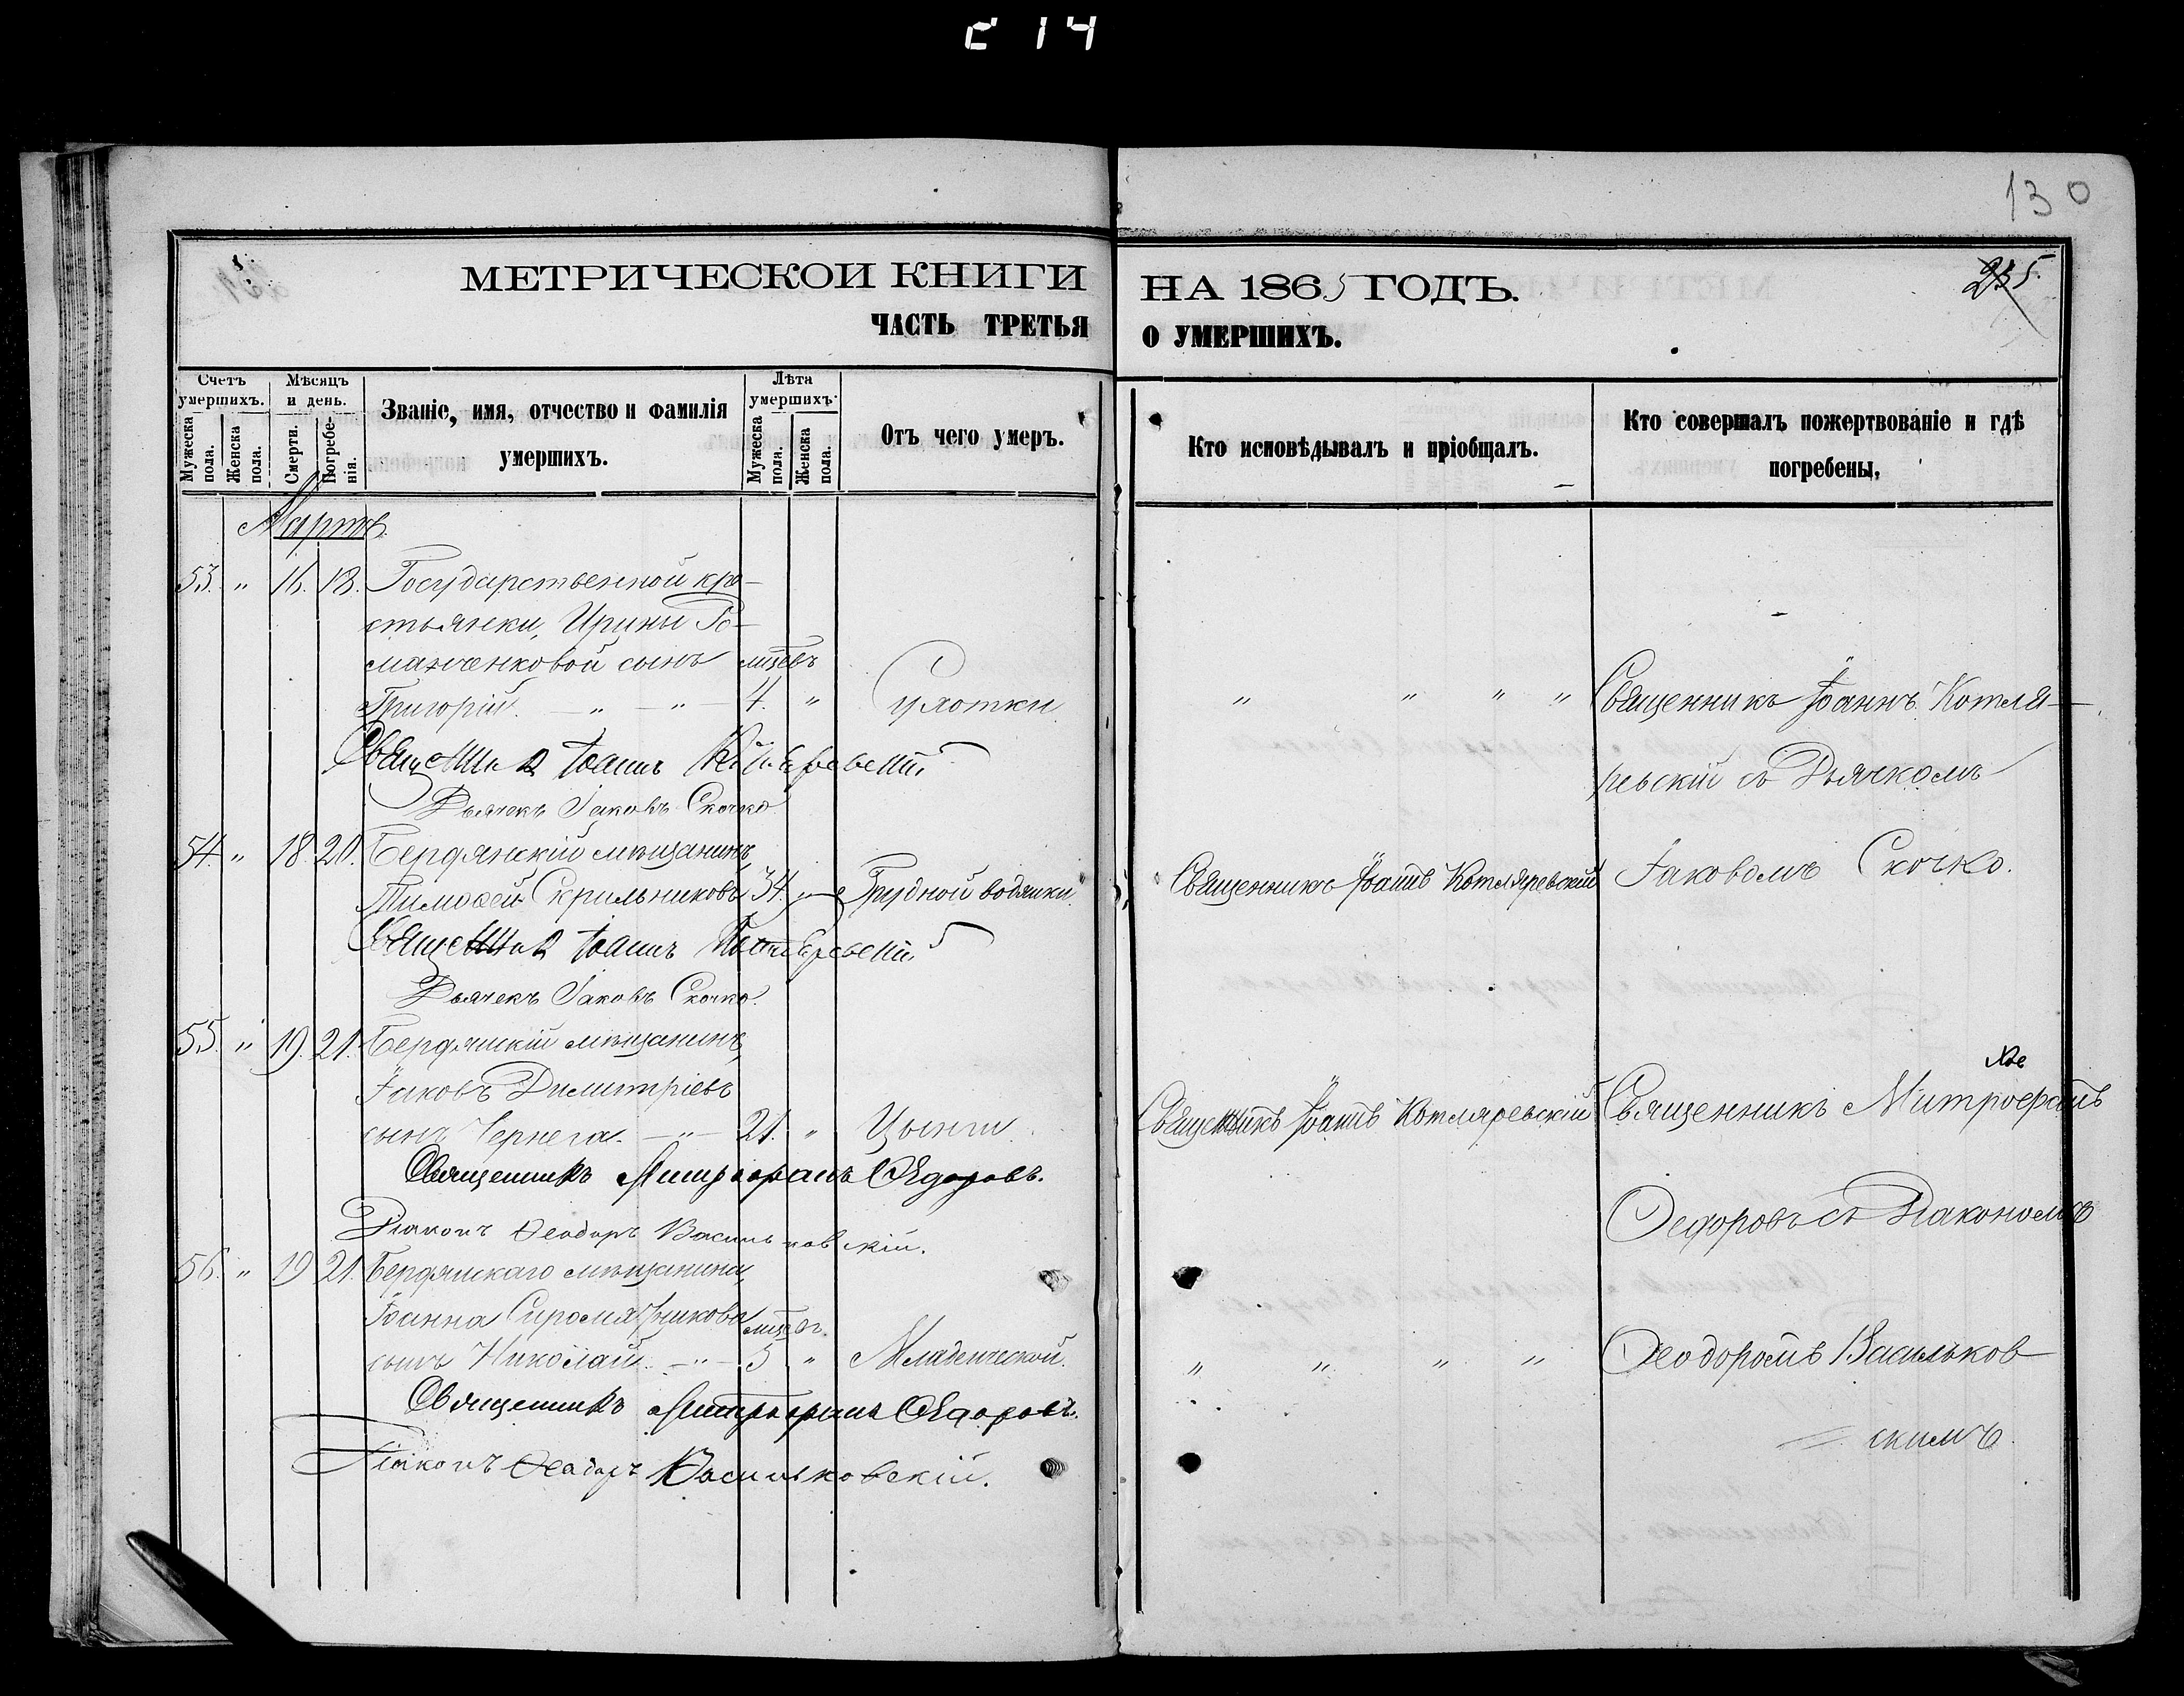 214
130
МЕТРИЧЕСКОЙ КНИГИ НА 1865 ГОДЪ.
235.
ЧАСТЬ ТРЕТЬЯ О УМЕРШИХЪ.
Счетъ умершихъ.
Мужеска пола.
Женска пола.
Мѣсяцъ и день.
Смерти.
Погребенія.
Званіе, имя, отчество и фамилія умершихъ.
Лѣта умершихъ.
Мужеска пола.
Женска пола.
Отъ чего умеръ.
Кто исповѣдывалъ и пріобщалъ.
Кто совершалъ пожертвованіе и гдѣ погребены,
Мартъ.
53. " 16. 18. Государственной кре-
стьянки, Ирины Ро-
манченковой сынъ мцевъ
Григорій. — " — " — 4. " Сухотки " " " " Священникъ Іоаннъ Котля-
Священникъ Іоаннъ Котляревскій
ревскій съ Дьячкомъ
Дьячекъ Іаковъ Скочко
54. " 18. 20. Бердянскій мѣщанинъ,
Тимофей Скрильниковъ 34. " Грудной водянки. Священникъ Іоаннъ Котляревскій Іаковомъ Скочко.
Священникъ Іоаннъ Котляревскій
Дьячекъ Іаковъ Скочко.
55. " 19. 21. Бердянскій мѣщанинъ,
Іаковъ Димитріевъ
сынъ Чернега. — " — 21. " Цынги. Священникъ Іоаннъ Котляревскій Священникъ Митрофанъ
Священникъ Митрофанъ Ѳедоровъ.
Ѳедоровъ съ Діакономъ
Діаконъ Ѳеодоръ Васильковскій.
56. " 19 21. Бердянскаго мѣщанина,
Іоанна Сиромятникова мцевъ
сынъ Николай. — " — 5 " Младенческой. " " " " Ѳеодоромъ Васильков-
Священникъ Митрофанъ Ѳедоровъ.
скимъ.
Діаконъ Ѳеодоръ Васильковскій.